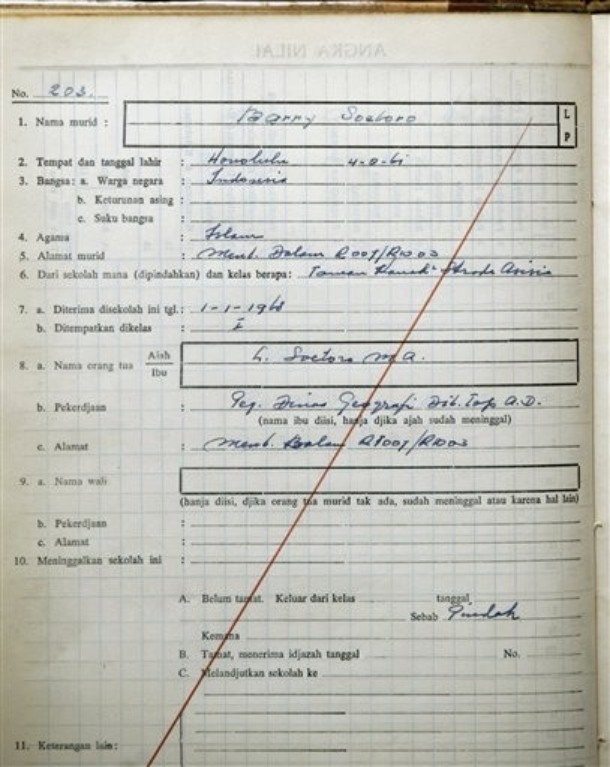 ANGKA NILAI
No. 203.
1. Nama murid : Barry Soetoro L
P
2. Tempat dan tanggal lahir : Honolulu 4-8-61
3. Bangsa: a. Warga negara : Indonesia
b. Keturunan asing :
c. Suku bangsa :
4. Agama : Islam
5. Alamat murid : Ment. Dalam R001/Rw03
6. Dari sekolah mana (dipindahkan) dan kelas berapa: Taman Kanak² Strada Asisia
7. a. Diterima disekolah ini tgl.: 1-1-1968
b. Ditempatkan dikelas : I
8. a. Nama orang tua Ajah L. Soetoro M.A.
Ibu
b. Pekerdjaan : Peg. Dinas Geografi Dit. Top. A.D.
(nama ibu diisi, hanja djika ajah sudah meninggal)
c. Alamat : Ment. Dalam RT001/Rw03
9. a. Nama wali
(hanja diisi, djika orang tua murid tak ada, sudah meninggal atau karena hal lain)
b. Pekerdjaan :
c. Alamat :
10. Meninggalkan sekolah ini :
A. Belum tamat. Keluar dari kelas tanggal
Sebab Pindah
Kemana
B. Tamat, menerima idjazah tanggal No.
C. Melandjutkan sekolah ke
11. Keterangan lain :